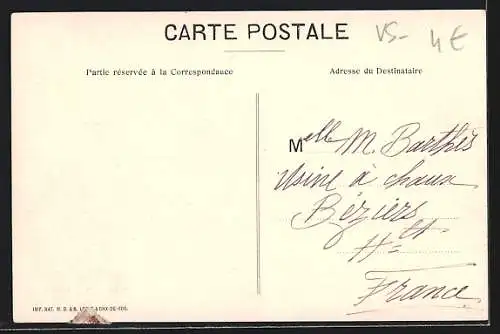 CARTE POSTALE
VS- 4€
Partie réservée à la Correspondance
Adresse du Destinataire
Melle M. Barthès
Usine à chaux
Béziers
Hlt
France
IMP. NAT.